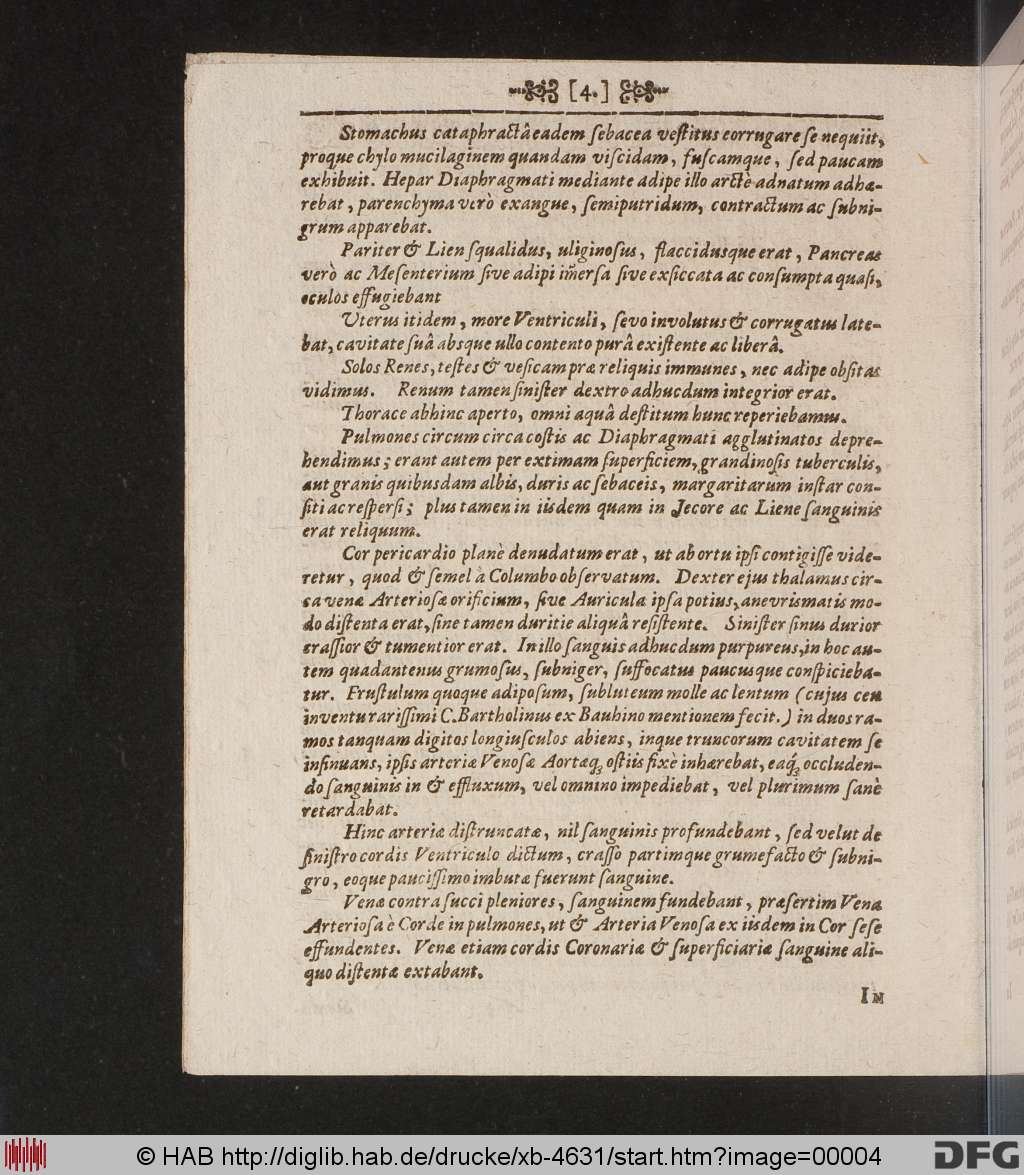 [4.]
Stomachus cataphractâ eadem ſebacea veſtitus corrugare ſe nequiit,
proque chylo mucilaginem quandam viſcidam, fuſcamque, ſed paucam
exhibuit. Hepar Diaphragmati mediante adipe illo arctè adnatum adhæ-
rebat, parenchyma verò exangue, ſemiputridum, contractum ac ſubni-
grum apparebat.
Pariter & Lien ſqualidus, uliginoſus, flaccidusque erat, Pancreas
verò ac Meſenterium ſive adipi im̃erſa ſive exſiccata ac conſumpta quaſi,
oculos effugiebant
Uterus itidem, more Ventriculi, ſevo involutus & corrugatus late-
bat, cavitate ſuâ absque ullo contento purâ exiſtente ac liberâ.
Solos Renes, teſtes & veſicam præ reliquis immunes, nec adipe obſitas
vidimus. Renum tamen ſiniſter dextro adhucdum integrior erat.
Thorace abhinc aperto, omni aquâ deſtitum hunc reperiebamus.
Pulmones circum circa coſtis ac Diaphragmati agglutinatos depre-
hendimus; erant autem per extimam ſuperficiem, grandinoſis tuberculis,
aut granis quibusdam albis, duris ac ſebaceis, margaritarum inſtar con-
ſiti ac reſperſi; plus tamen in iisdem quam in Jecore ac Liene ſanguinis
erat reliquum.
Cor pericardio planè denudatum erat, ut ab ortu ipſi contigiſſe vide-
retur, quod & ſemel à Columbo obſervatum. Dexter ejus thalamus cir-
ca venæ Arterioſæ orificium, ſive Auricula ipſa potius, anevrismatis mo-
do diſtenta erat, ſine tamen duritie aliquâ reſiſtente. Siniſter ſinus durior
craſſior & tumentior erat. In illo ſanguis adhucdum purpureus, in hoc au-
tem quadantenus grumoſus, ſubniger, ſuffocatus paucusque conſpicieba-
tur. Fruſtulum quoque adipoſum, ſubluteum molle ac lentum (cujus ceu
inventu rariſſimi C. Bartholinus ex Bauhino mentionem fecit.) in duos ra-
mos tanquam digitos longiuſculos abiens, inque truncorum cavitatem ſe
inſinuans, ipſis arteriæ Venoſæ Aortæq; oſtiis fixè inhærebat, eaq́; occluden-
do ſanguinis in & effluxum, vel omnino impediebat, vel plurimum ſanè
retardabat.
Hinc arteriæ diſtruncatæ, nil ſanguinis profundebant, ſed velut de
ſiniſtro cordis Ventriculo dictum, craſſo partimque grumefacto & ſubni-
gro, eoque pauciſſimo imbutæ fuerunt ſanguine.
Venæ contra ſucci pleniores, ſanguinem fundebant, præſertim Vena
Arterioſa è Corde in pulmones, ut & Arteria Venoſa ex iisdem in Cor ſeſe
effundentes. Venæ etiam cordis Coronariæ & ſuperficiariæ ſanguine ali-
quo diſtentæ extabant.
IN
© HAB http://diglib.hab.de/drucke/xb-4631/start.htm?image=00004
DFG